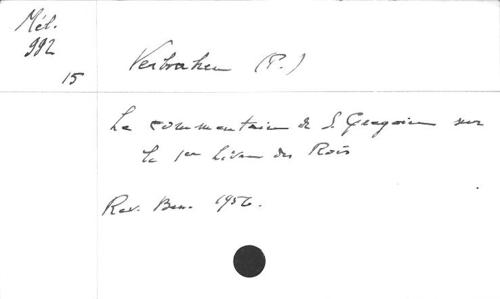 Mél.
992
15
Verbraken (P.)
Le commentaire de S. Gregoire sur
le 1er Livre des Rois
Rev. Ben. 1956.